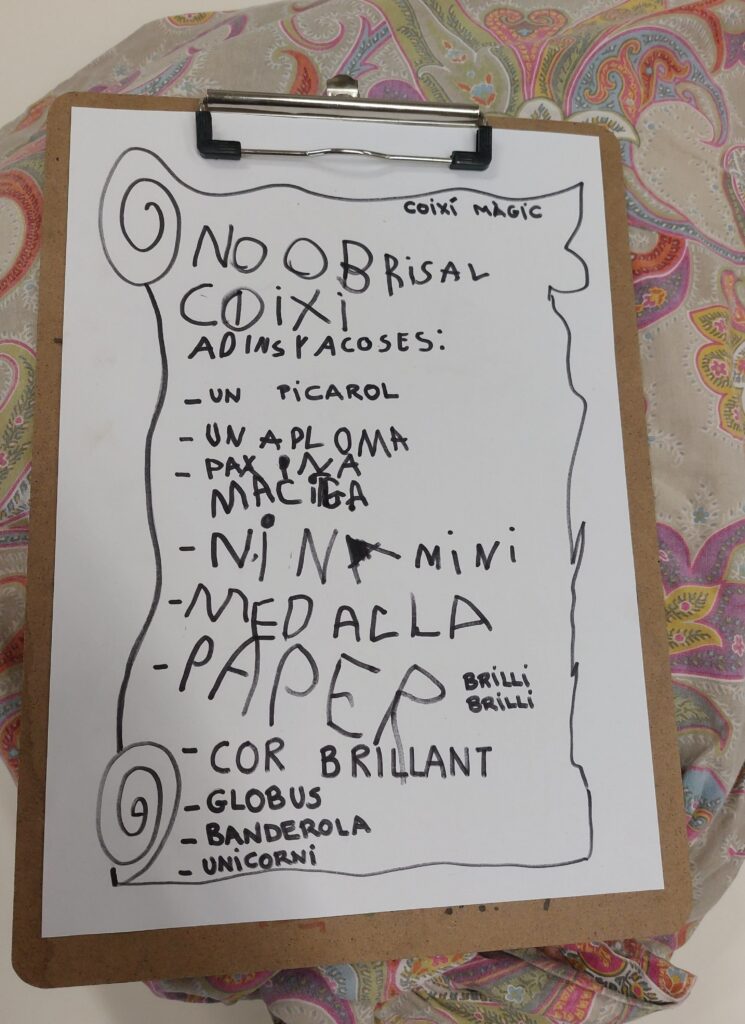 COIXÍ MÀGIC
NO OBRISAL
COIXI
ADINS YACOSES:
- UN PICAROL
- UN APLOMA
- PAXINA
MACIGA
- NINA MINI
- MEDALLA
- PAPER BRILLI
BRILLI
- COR BRILLANT
- GLOBUS
- BANDEROLA
- UNICORNI